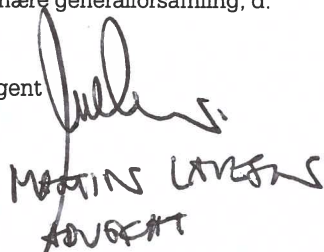 nære generalforsamling, d.
gent
MARTIN LAVESEN
ADVOKAT